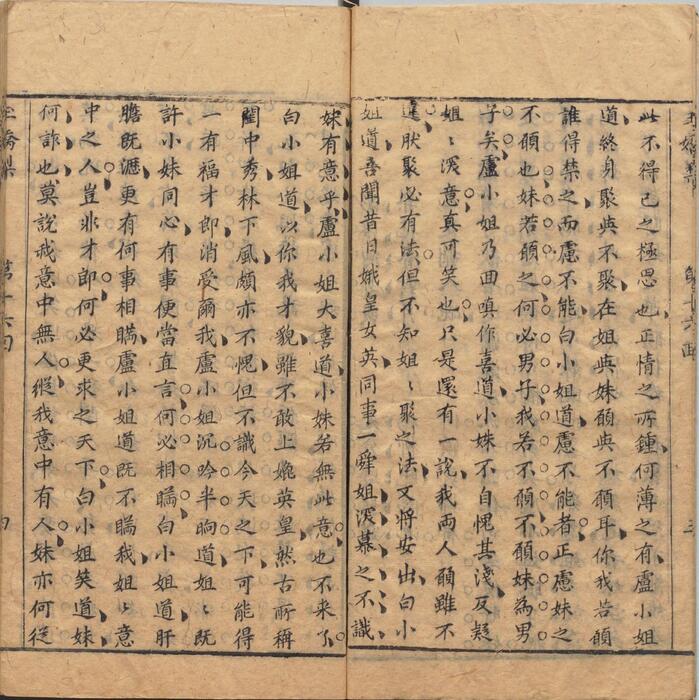 此不得已之極思也正情之所鍾何薄之有盧小姐
道終身聚與不聚在姐與妹願與不願耳你我若願
誰得禁之而慮不能白小姐道慮不能者正慮妹之
不願也妹若願之何必男子我若不願不願妹為男
子矣盧小姐乃回嗔作喜道小妹不自愧其淺反疑
姐〻深意真可笑也只是還有一說我兩人願雖不
違然聚必有法但不知姐〻聚之法又將安出白小
姐道吾聞昔日娥皇女英同事一舜姐深慕之不識
妹有意乎盧小姐大喜道小妹若無此意也不來了
白小姐道以你我才貌雖不敢上媲英皇然古所稱
閨中秀林下風頗亦不愧但不識今天之下可能得
一有福才郎消受爾我盧小姐沉吟半晌道姐〻既
許小妹同心有事便當直言何必相瞞白小姐道肝
膽既瀝更有何事相瞞盧小姐道既不瞞我姐〻意
中之人豈非才郎何必更求之天下白小姐笑道妹
何詐也莫說我意中無人縱我意中有人妹亦何從
玉嬌梨
第十六回